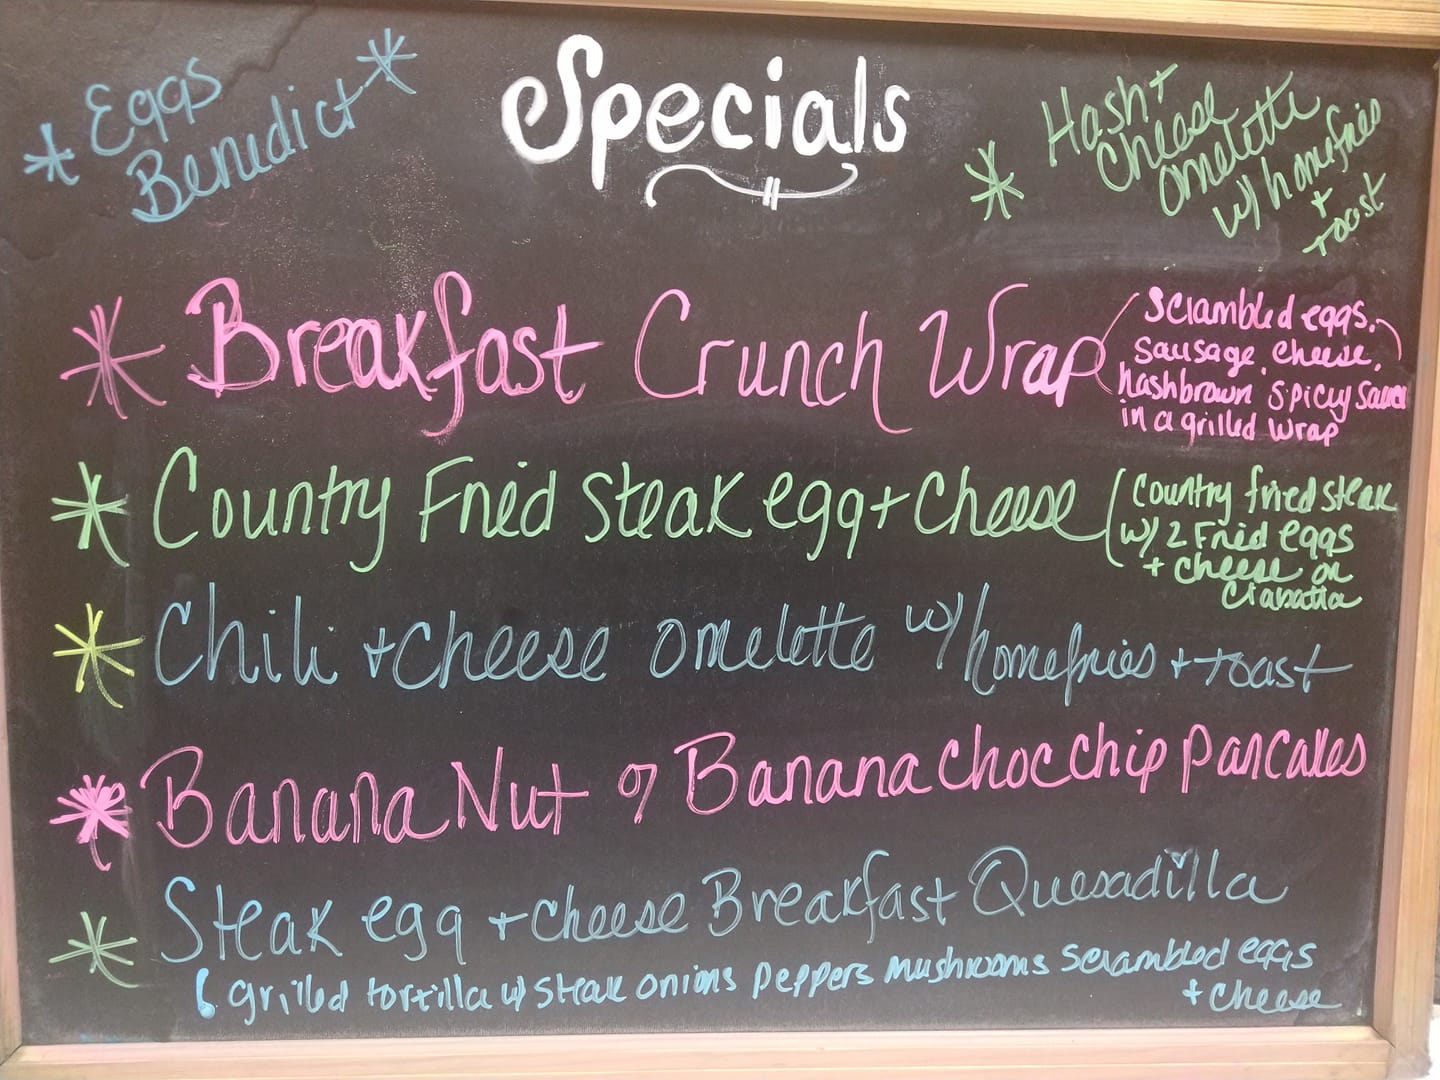 Specials
Eggs
Benedict
Hash +
Cheese
omelette
w/ homefries
+
toast
Breakfast Crunch Wrap
Scrambled eggs.
Sausage. cheese.
hashbrown spicy sauce
in a grilled wrap
Country Fried Steak egg + Cheese
Country fried steak
w/ 2 Fried eggs
+ cheese on
Ciabatta
Chili + Cheese omelette w/ homefries + toast
Banana Nut or Banana Choc chip pancakes
Steak egg + cheese Breakfast Quesadilla
grilled tortilla w/ steak onions peppers mushrooms scrambled eggs
+ cheese